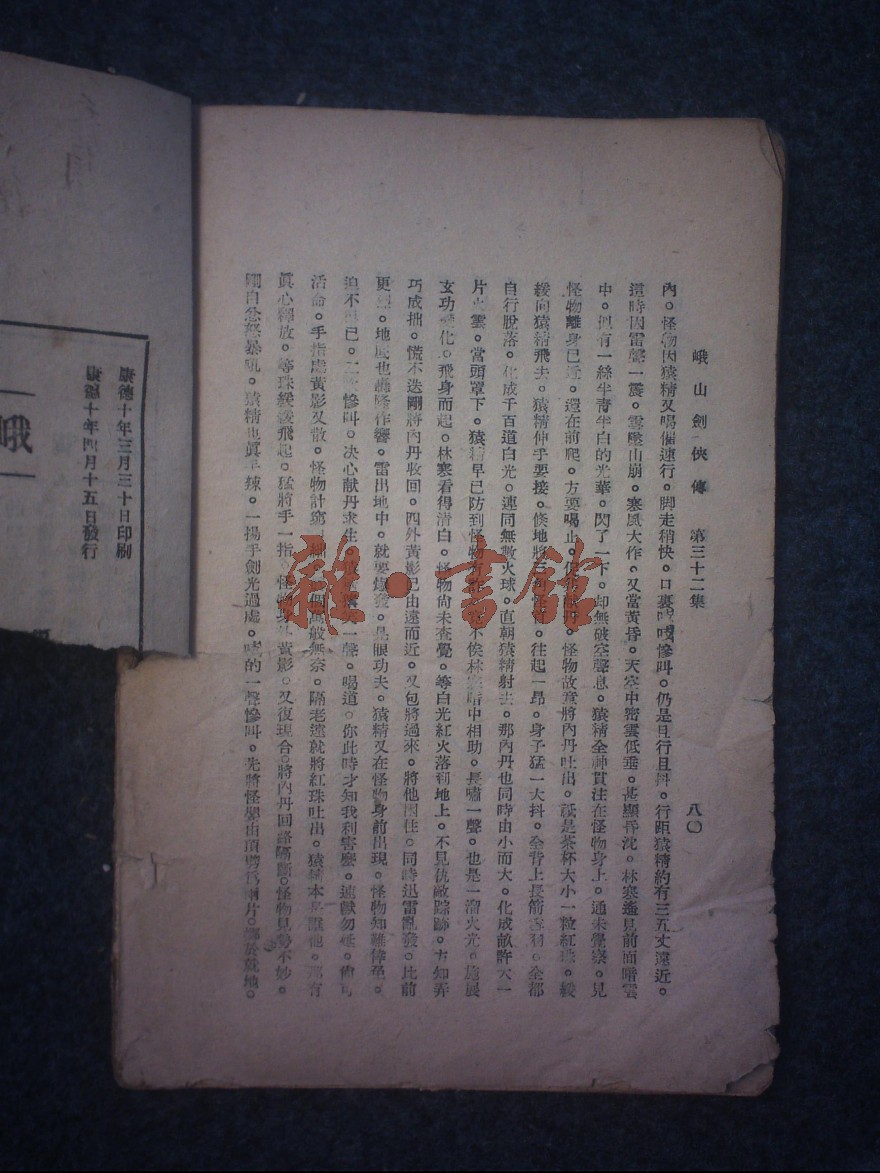 峨山劍俠傳 第三十二集 八〇
內。怪物因猿精又喝催速行。脚走稍快。口裏慘叫。仍是且行且抖。行距猿精約有三五丈遠近。
這時因雷聲一震。雪墜山崩。寒風大作。又當黃昏。天空中密雲低垂。甚顯昏沈。林寒遙見前面暗雲
中。似有一絲半靑半白的光華。閃了一下。却無破空聲息。猿精全神貫注在怪物身上。通未覺察。見
怪物離身已近。還在前爬。方要喝止。怪物故意將內丹吐出。祇是茶杯大小一粒紅珠。緩
緩向猿精飛去。猿精伸手要接。倏地將三角怪頭。往起一昂。身子猛一大抖。全背上長箭。全部
自行脫落。化成千百道白光。連同無數火球。直朝猿精射去。那內丹也同時由小而大。化成畝許大一
片火雲。當頭罩下。猿精早已防到怪物有。不俟林寒暗中相助。長嘯一聲。也是一溜火光。施展
玄功變化。飛身而起。林寒看得清白。怪物尙未查覺。等白光紅火落到地上。不見仇敵踪跡。方知弄
巧成拙。慌不迭剛將內丹收回。四外黃影已由遠而近。又包將過來。將他困住。同時迅雷亂發。比前
更。地底也轟隆作響。雷出地中。就要爆發。眼功夫。猿精又在怪物身前出現。怪物知難倖免。
迫不已。二慘叫。决心献丹求生。一聲。喝道。你此時才知我利害麼。速獻勿延。
活命。手指處黃影又散。怪物計窮。萬般無奈。隔老遠就將紅珠吐出。猿精本是他。那有
眞心釋放。等珠緩緩飛起。猛將手一指。怪物身外黃影。又復現合。將內丹回路隔斷。怪物見勢不妙。
剛自忿怒暴吼。猿精也眞辛辣。一揚手劍光過處。的一聲慘叫。先將怪物由頂劈爲兩片。於就地。
峨
康德十年三月三十日印刷
康德十年四月十五日發行
雜·書館